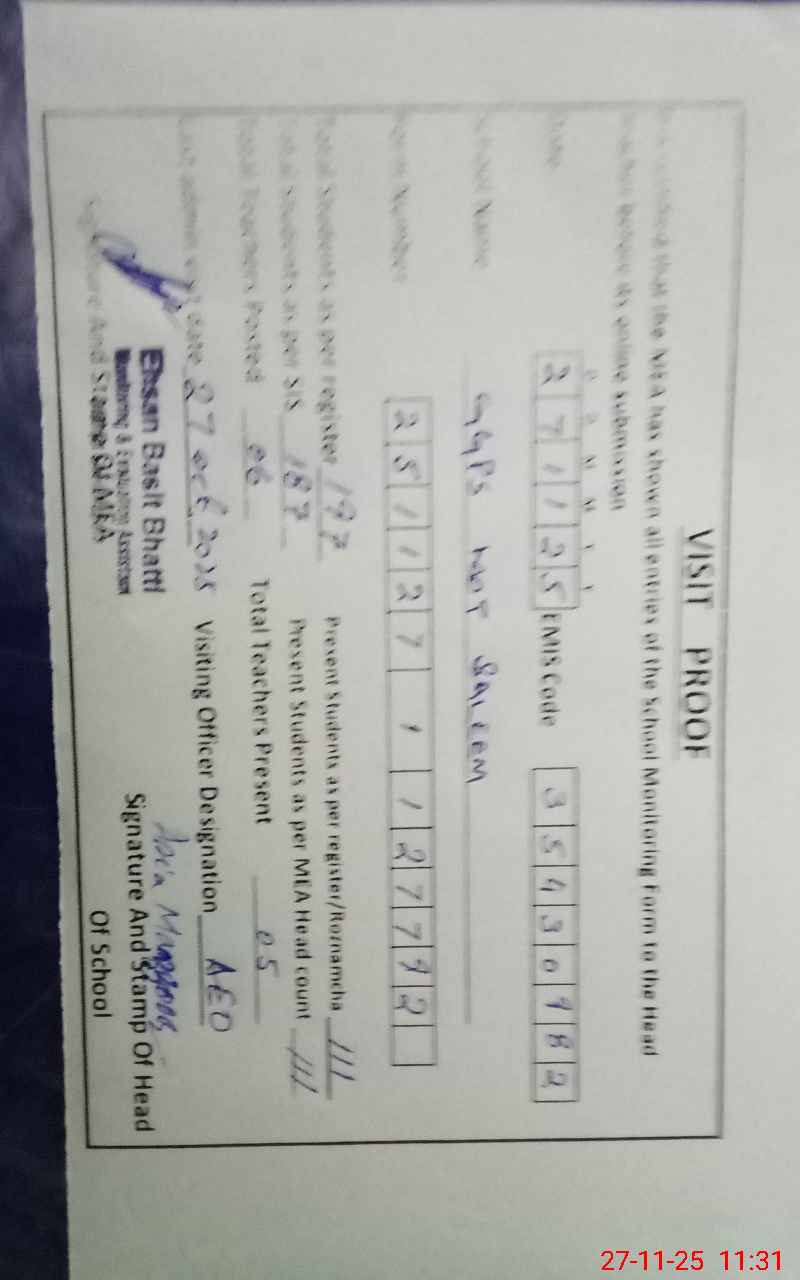 VISIT PROOF
that the MEA has shown all entries of the School Monitoring Form to the Head
before its online submission
Date 2 7 1 1 2 5 EMIS Code 3 5 4 3 0 9 8 2
School Name GGPS KOT SALEEM
Form Number 2 5 1 1 2 7 1 1 2 7 7 9 2
Total Students as per register 197 Present Students as per register/Roznamcha 111
Total Students as per SIS 187 Present Students as per MEA Head count 111
Total Teachers Posted 06 Total Teachers Present 05
Last admin visit date 27 oct 2025 Visiting Officer Designation AEO
Ehsan Basit Bhatti
Monitoring & Evaluation Assistant
Signature And Stamp Of MEA
Signature And Stamp Of Head
Of School
27-11-25 11:31